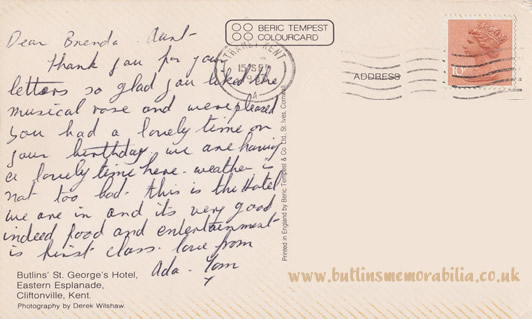 Dear Brenda Aunt-
Thank you for your
letters so glad you liked the
musical rose and were pleased
you had a lovely time on
your birthday. we are having
a lovely time here. weather is
not too bad. this is the Hotel
we are in and its very good
indeed food and entertainment
is first class. love from
Ada. Tom
Butlins' St. George's Hotel,
Eastern Esplanade,
Cliftonville, Kent.
Photography by Derek Wilshaw.
BERIC TEMPEST
COLOURCARD
Printed in England by Beric Tempest & Co. Ltd., St. Ives, Cornwall
KENT
15 SEP
A
ADDRESS
10
www.butlinsmemorabilia.co.uk